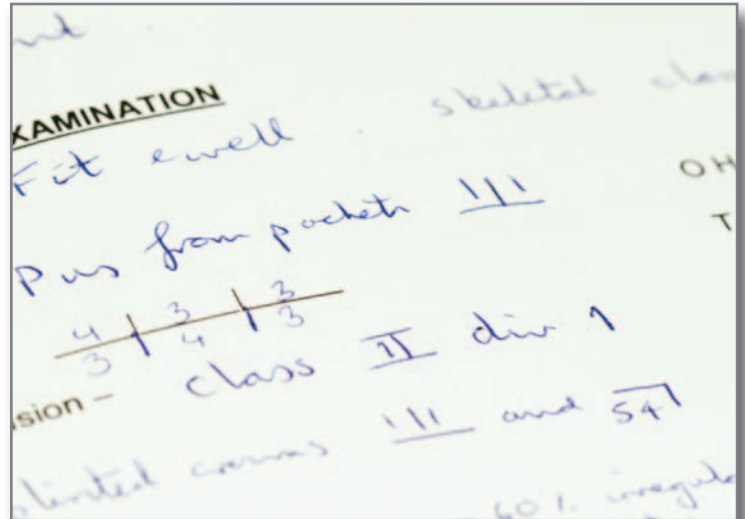 XAMINATION
Fit & well . skeletal clas
OH
Pus from pockets 1|1
T
4 | 3 | 3
3 | 4 | 3
sion – class II div 1
splinted crowns 1|1 and 54
60% irregula